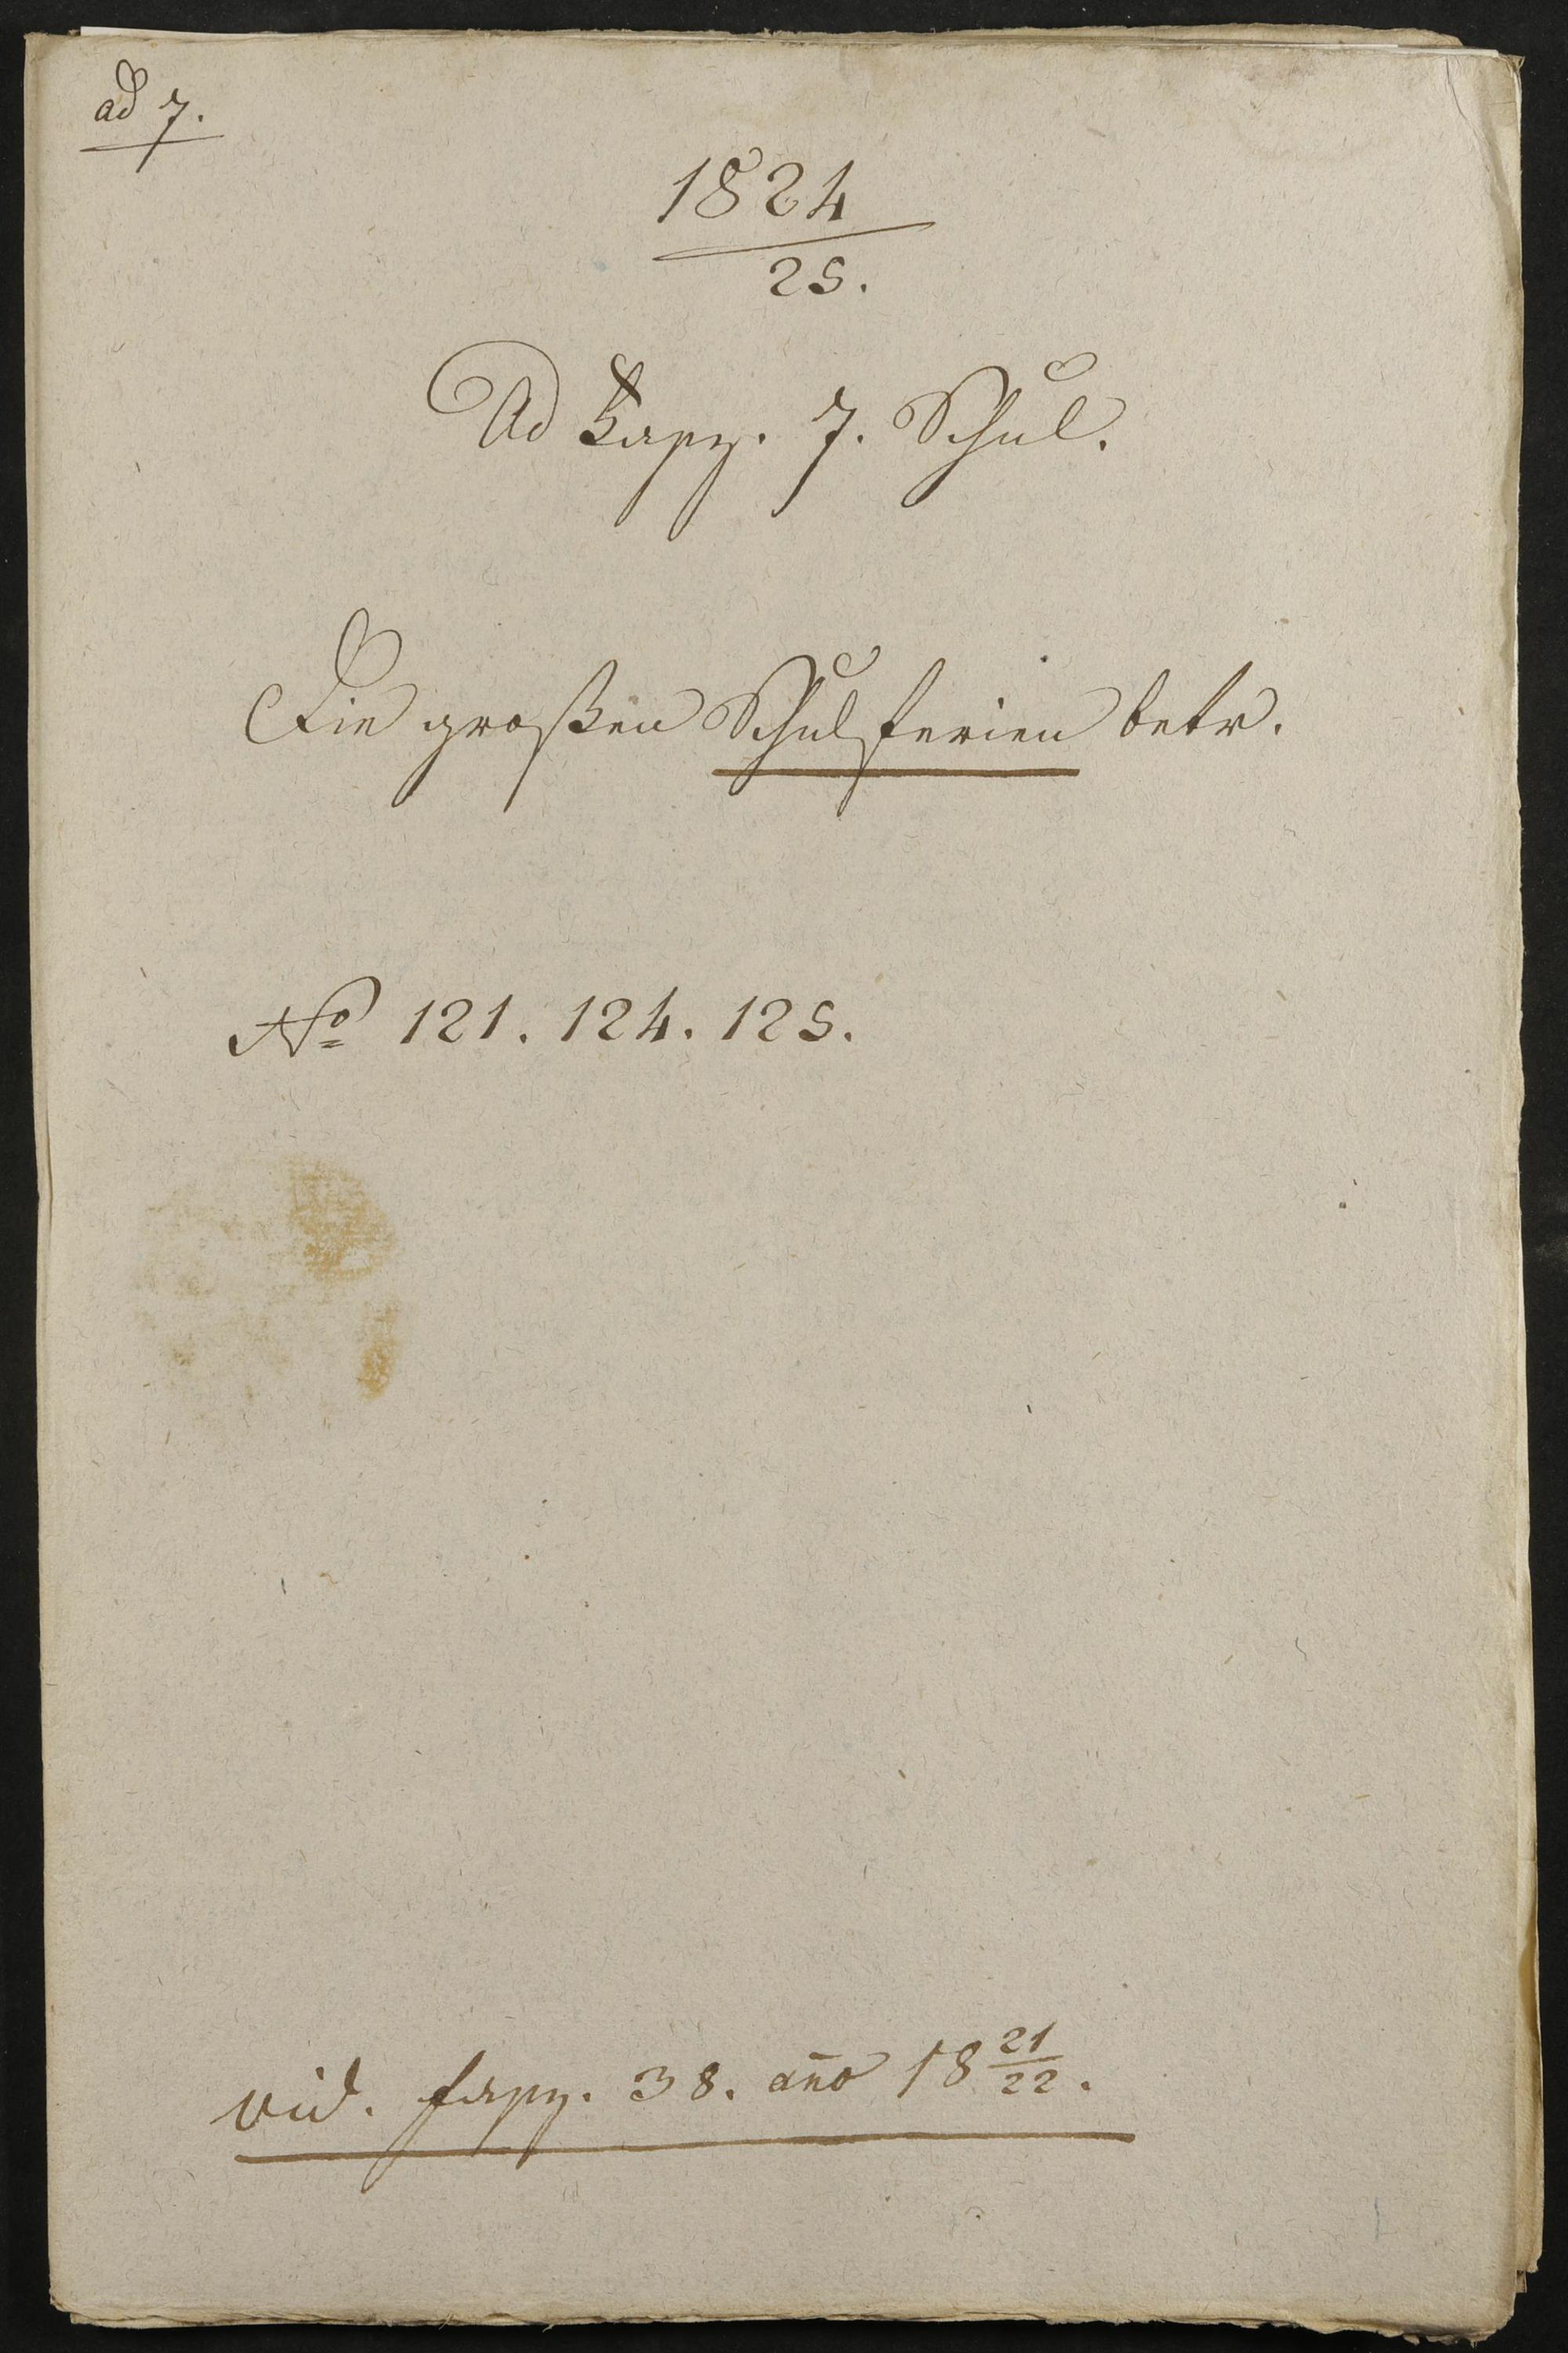 ad 7.
1824
25.
Ad Fasz. 7. Schul.
Die großen Schulferien betr.
No 121. 124. 125.
vid. fasz. 38. año 18 21/22.